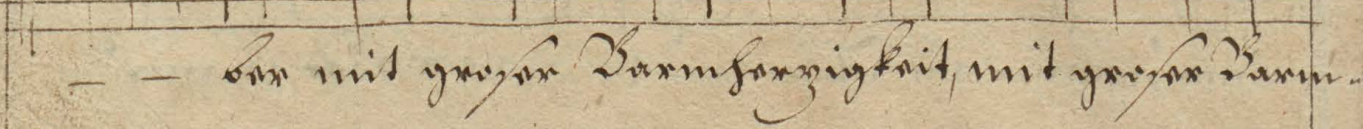 – – ber mit groser Barmherzigkeit, mit groser Barm-